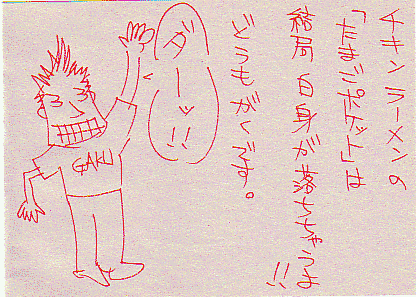 チキンラーメンの
「たまごポケット」は
結局白身が落ちちゃうよ!!
どうもがくです。
ダーッ!!
GAKU